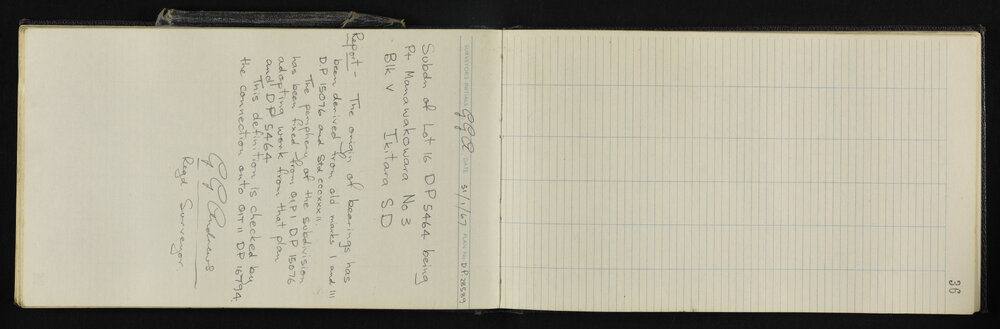 SURVEYOR'S INITIALS GGA DATE 31/1/67 PLAN No. D.P. 28589
Subdn of Lot 16 DP 5464 being
Pt Manawakowara No 3
Blk V Ikitara SD
Report - The origin of bearings has
been derived from old marks I and III
D.P 15076 and Std CCCXXXII.
The periphery of the subdivision
has been fixed from OIP I D.P 15076
adopting work from that plan
and DP 5464
This definition is checked by
the connection onto OIT II D.P 15794.
GG Andrews
Regd Surveyor
36